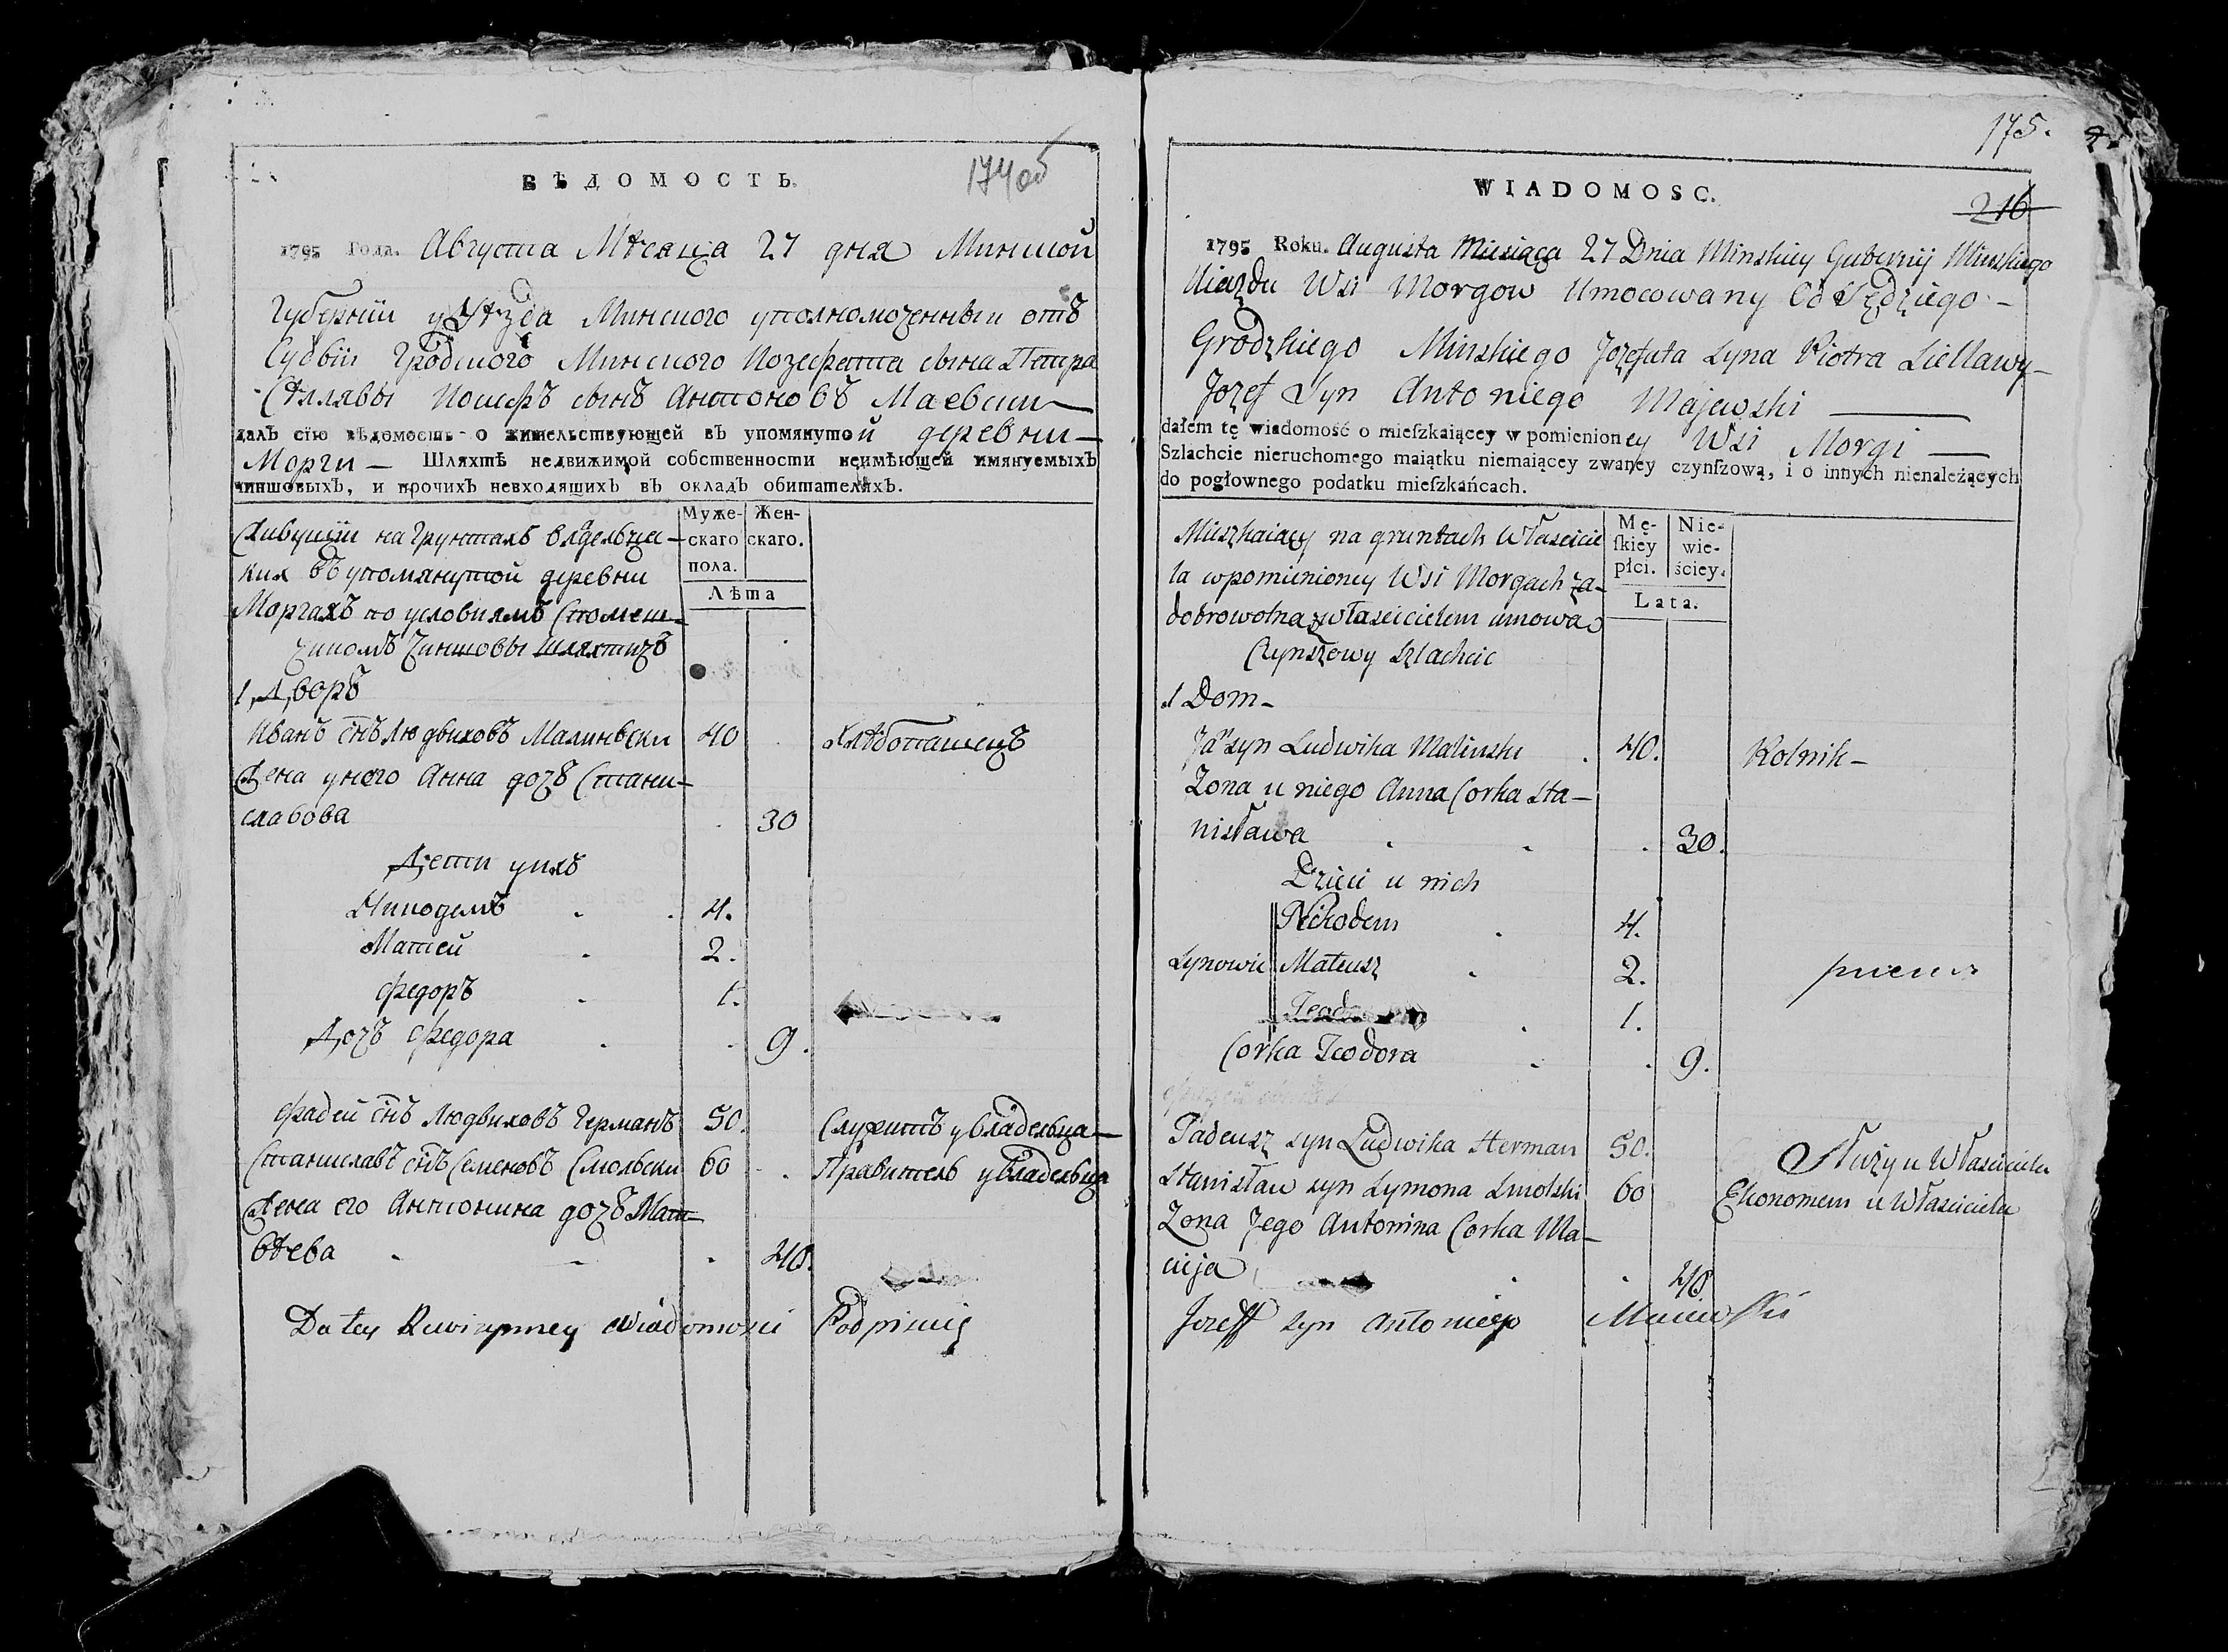 174об
ВѢДОМОСТЬ.
1795 Года. Августа Мѣсяца 27 дня Минской
Губернїи уѣзда Минского уполномоченный отъ
Судьи Гродского Минского Иозефата сына Петра
Сѣллявы Иосифъ сынъ Антоновъ Маевски
далъ сїю вѣдомость о жительствующей въ упомянутой деревни
Морги — Шляхтѣ недвижимой собственности неимѣющей имянуемыхъ
чиншовыхъ, и прочихъ невходящихъ въ окладъ обитателяхъ.
Муже- Жен-
скаго скаго.
пола.
Лѣта
Живущїи на Грунтахъ владельче-
ких въ упомянутой деревни
Моргахъ по условиямъ с помеш-
чикомъ Чиншовы шляхтичъ
1 Дворъ
Иванъ снъ Людвиковъ Малиньски 40 Хлѣбопашецъ
Жена у него Анна дочъ Стани-
славова 30
Дети у ихъ
Никодемъ 4.
Матей 2.
Федоръ 1.
Дочъ Федора 9.
Фадей снъ Людвиковъ Германъ 50. Служитъ у владельца
Станиславъ снъ Семеновъ Смольски 60 Правитель у владельца
Жена его Антонина дочъ Мат-
вѣева 40.
Do tey Rewizyiney Wiadomosci Podpisuię
175.
WIADOMOSC.
216
1795 Roku. Augusta Miesiąca 27 Dnia Minskiey Gubernij Minskiego
Uiazdu Wsi Morgow Umocowany Od Sędziego -
Grodzkiego Minskiego Jozefata Syna Piotra Siellawy -
Jozef Syn Antoniego Majewski
dałem tę wiadomość o mieſzkaiącey w pomienioney Wsi Morgi
Szlachcie nieruchomego maiątku niemaiącey zwaney czynſzową, i o innych nienależących
do pogłownego podatku mieſzkańcach.
Mę- Nie-
ſkiey wie-
płci. ściey.
Lata.
Mieszkaiący na gruntach Włascicie
la w pomienioney Wsi Morgach za-
dobrowolną z włascicielem umową
Czynszowy Szlachcic
1 Dom -
Jan syn Ludwika Malinski 40. Rolnik -
Zona u niego Anna Corka Sta-
nisława 30.
Dzieci u nich
Nikodem 4.
Synowie Mateusz 2.
Teodor 1.
Corka Teodora 9.
Tadeusz syn Ludwika Herman 50. Służy u Właściciela
Stanisław syn Symona Smolski 60 Ekonomem u Właściciela
Zona Jego Antonina Corka Ma-
cieja 40
Jozeff syn Antoniego Maiewski